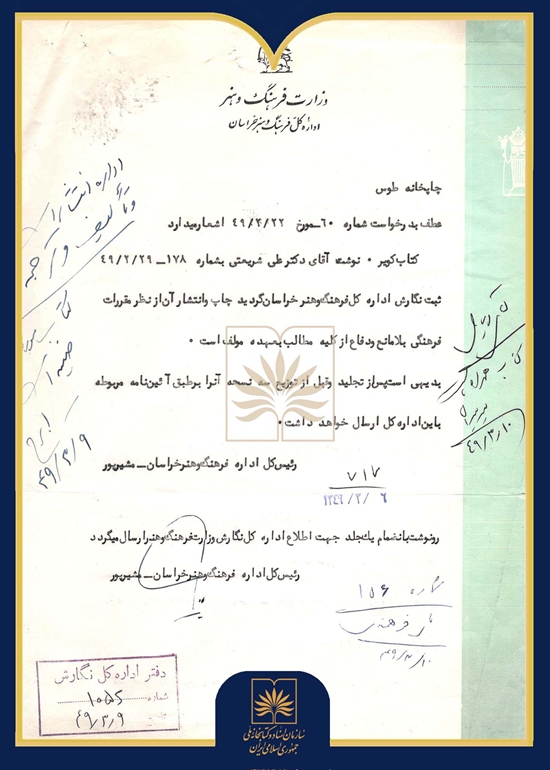 وزارت فرهنگ و هنر
اداره کل فرهنگ و هنر خراسان
چاپخانه طوس
عطف بدرخواست شماره ۶۰ــمورخ ۴۹/۲/۲۲ اشعار میدارد
کتاب کویر ۰ نوشته آقای دکتر علی شریعتی بشماره ۱۷۸ــ۴۹/۲/۲۹
ثبت نگارش اداره کل فرهنگ وهنر خراسان گردید چاپ وانتشار آن از نظر مقررات
فرهنگی بلامانع ودفاع از کلیه مطالب بعهده مولف است ۰
بدیهی است پس از تجلید وقبل از توزیع سه نسخه آنرا برطبق آئین‌نامه مربوطه
باین اداره کل ارسال خواهد داشت ۰
رئیس کل اداره فرهنگ وهنر خراسان ــ مشیرپور
۷۱۷
۱۳۴۹/۳/۶
رونوشت بانضمام یک جلد جهت اطلاع اداره کل نگارش وزارت فرهنگ وهنر ارسال میگردد
رئیس کل اداره فرهنگ وهنر خراسان ــ مشیرپور
اداره انتشارات
کتاب
۴۹/۳/۹
۴۹/۳/۱۰
شماره ۱۵۶
دفتر اداره کل نگارش
شماره ۱۰۵۵
۴۹/۳/۹
سازمان اسناد و کتابخانه ملی
جمهوری اسلامی ایران